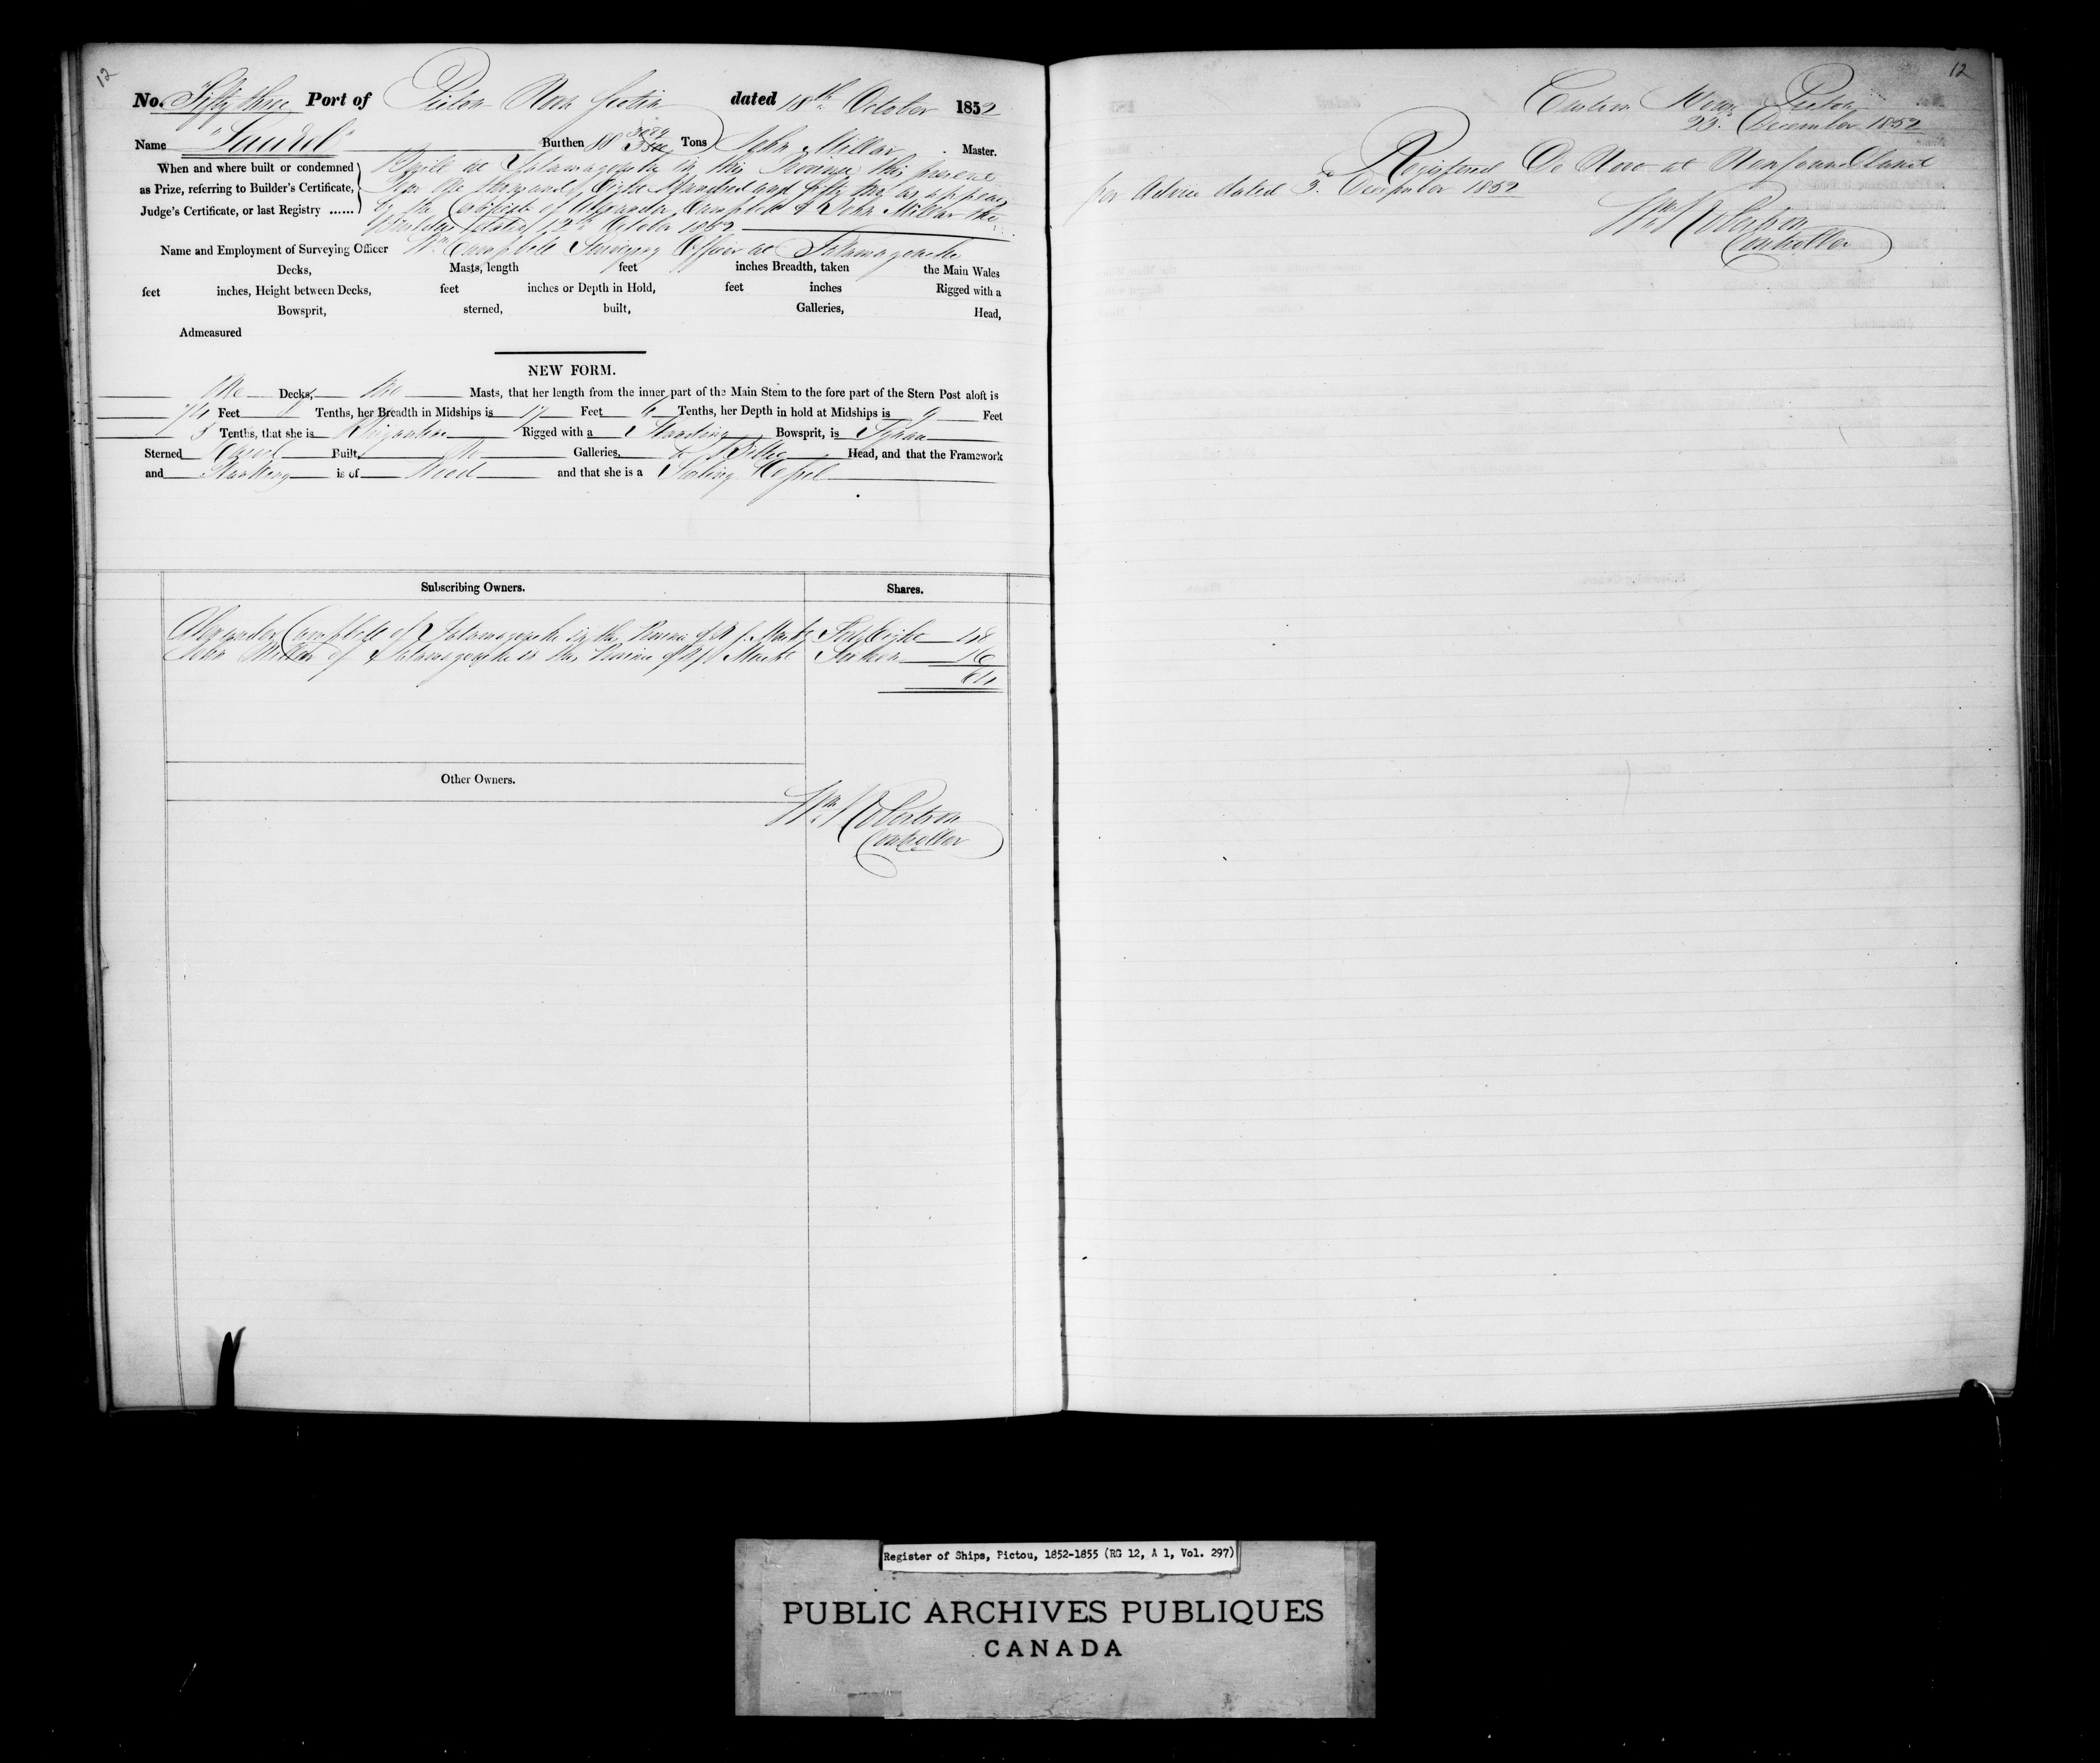 12
No. Fifty three Port of Pictou Nova Scotia dated 18th October 1852
Name Burthen Tons John Millar Master.
When and where built or condemned
as Prize, referring to Builder's Certificate,
Judge's Certificate, or last Registry ......
Built at Tatamagouche in this Province this present
Year One thousand Eight Hundred and fifty two as appears
by the Certificate of Alexander Campbell & John Millar the
Builders dated 12th October 1852
Name and Employment of Surveying Officer Wm Campbell Surveying Officer at Tatamagouche
Decks, Masts, length feet inches Breadth, taken the Main Wales
feet inches, Height between Decks, feet inches or Depth in Hold, feet inches Rigged with a
Bowsprit, sterned, built, Galleries, Head,
Admeasured
NEW FORM.
One Decks, two Masts, that her length from the inner part of the Main Stem to the fore part of the Stern Post aloft is
74 Feet Tenths, her Breadth in Midships is 17 Feet 6 Tenths, her Depth in hold at Midships is 9 Feet
5 Tenths, that she is Brigantine Rigged with a Standing Bowsprit, is Square
Sterned Carvel Built, No Galleries, Billet Head, and that the Framework
and Planking is of Wood and that she is a Sailing Vessel
Subscribing Owners. Shares.
Alexander Campbell of Tatamagouche in the Province of N S. Mercht Forty Eight 48
John Millar of Tatamagouche in the Province of N S Mercht Sixteen 16
64
Other Owners.
Wm Robertson
Controller
12
Custom House Pictou
23 December 1852
Registered De Novo at Newfoundland
per Advice dated 3d December 1852
Wm Robertson
Controller
Register of Ships, Pictou, 1852-1855 (RG 12, A 1, Vol. 297)
PUBLIC ARCHIVES PUBLIQUES
CANADA